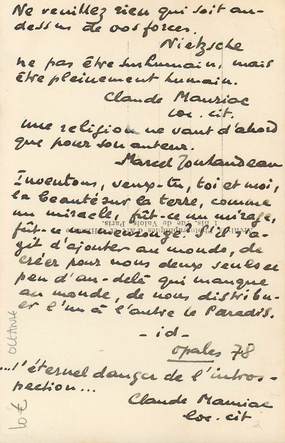 Ne veuillez rien qui soit au-
dessus de vos forces.
Nietzsche
ne pas être surhumain, mais
être pleinement humain.
Claude Mauriac
loc. cit.
une religion ne vaut d'abord
que pour son auteur.
Marcel Jouhandeau
Inventons, veux-tu, toi et moi,
la beauté sur la terre, comme
un miracle, fût-ce un mirage,
fût-ce un mensonge. S'il s'a-
git d'ajouter au monde, de
créer pour nous deux seuls ce
peu d'au-delà qui manque
au monde, de nous distribu-
er l'un à l'autre le Paradis.
- id -
opales 78
...l'éternel danger de l'intros-
pection...
Claude Mauriac
loc. cit
10 €